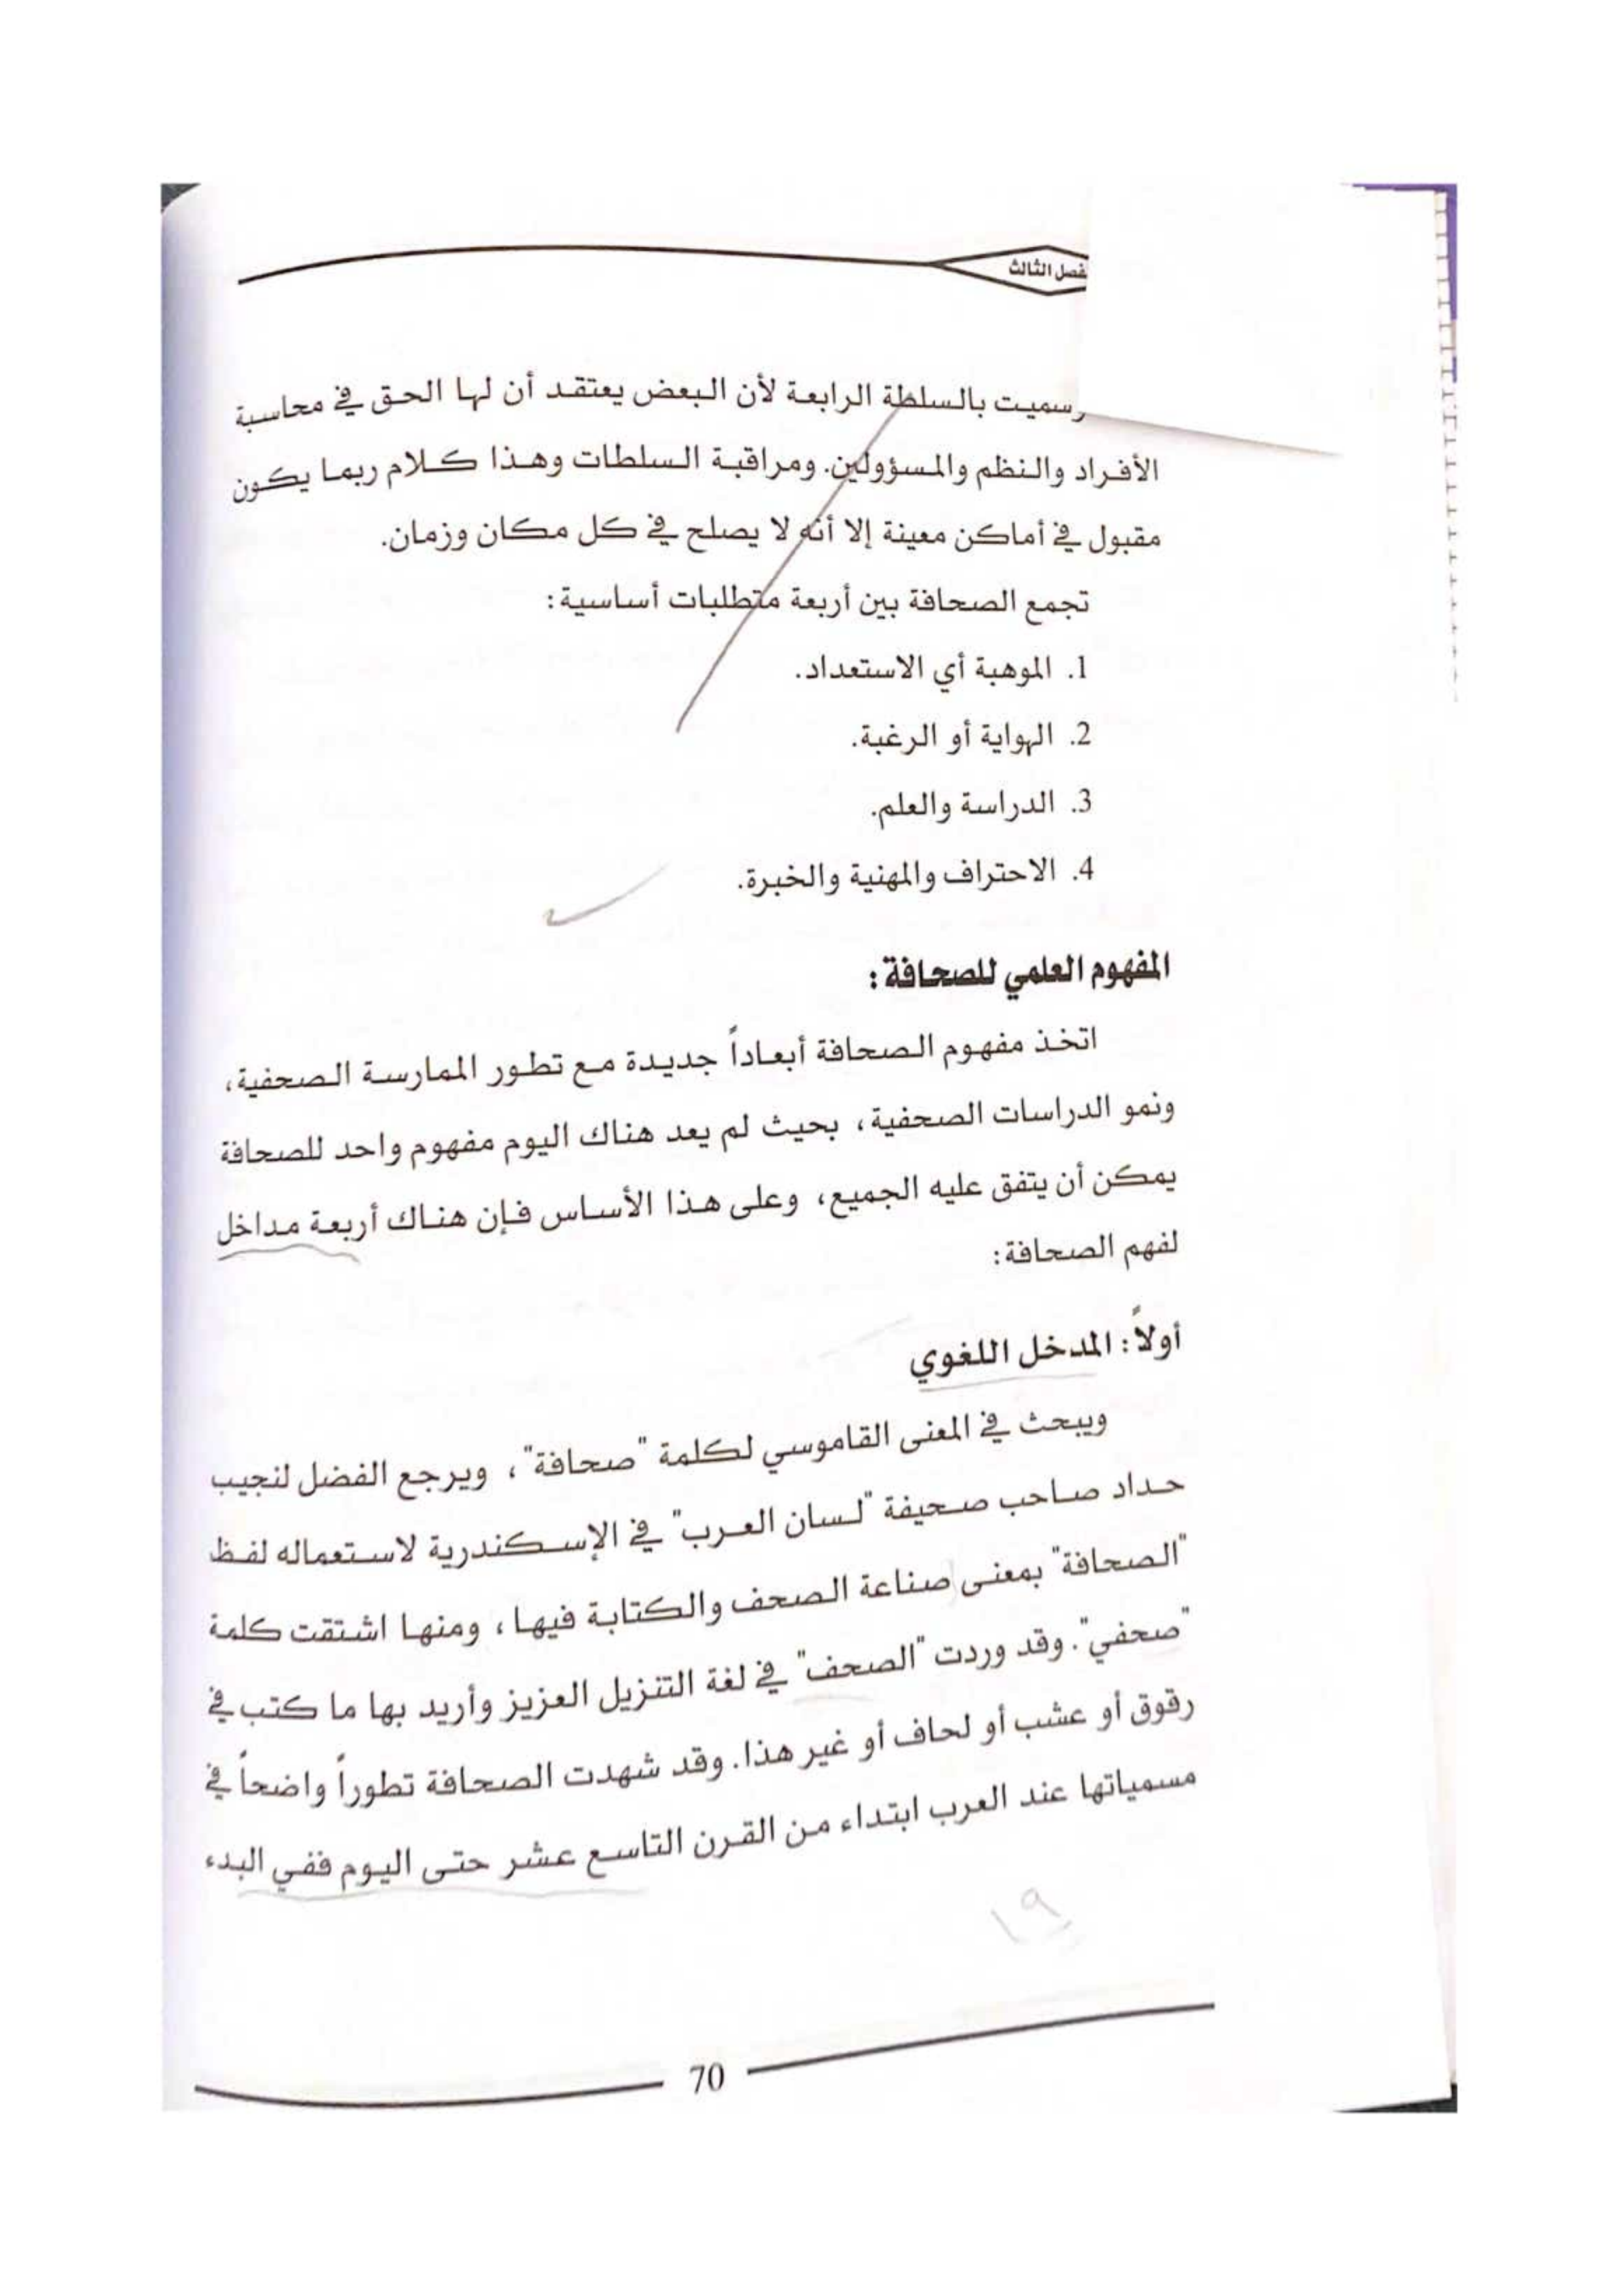 فصل الثالث
وسميت بالسلطة الرابعة لأن البعض يعتقد أن لها الحق في محاسبة
الأفراد والنظم والمسؤولين. ومراقبة السلطات وهذا كلام ربما يكون
مقبول في أماكن معينة إلا أنه لا يصلح في كل مكان وزمان.
تجمع الصحافة بين أربعة متطلبات أساسية:
1. الموهبة أي الاستعداد.
2. الهواية أو الرغبة.
3. الدراسة والعلم.
4. الاحتراف والمهنية والخبرة.
المفهوم العلمي للصحافة:
اتخذ مفهوم الصحافة أبعاداً جديدة مع تطور الممارسة الصحفية،
ونمو الدراسات الصحفية، بحيث لم يعد هناك اليوم مفهوم واحد للصحافة
يمكن أن يتفق عليه الجميع، وعلى هذا الأساس فإن هناك أربعة مداخل
لفهم الصحافة:
أولاً: المدخل اللغوي
ويبحث في المعنى القاموسي لكلمة "صحافة"، ويرجع الفضل لنجيب
حداد صاحب صحيفة "لسان العرب" في الإسكندرية لاستعماله لفظ
"الصحافة" بمعنى صناعة الصحف والكتابة فيها، ومنها اشتقت كلمة
"صحفي". وقد وردت "الصحف" في لغة التنزيل العزيز وأريد بها ما كتب في
رقوق أو عشب أو لحاف أو غير هذا. وقد شهدت الصحافة تطوراً واضحاً في
مسمياتها عند العرب ابتداء من القرن التاسع عشر حتى اليوم ففي البدء
١٩
70